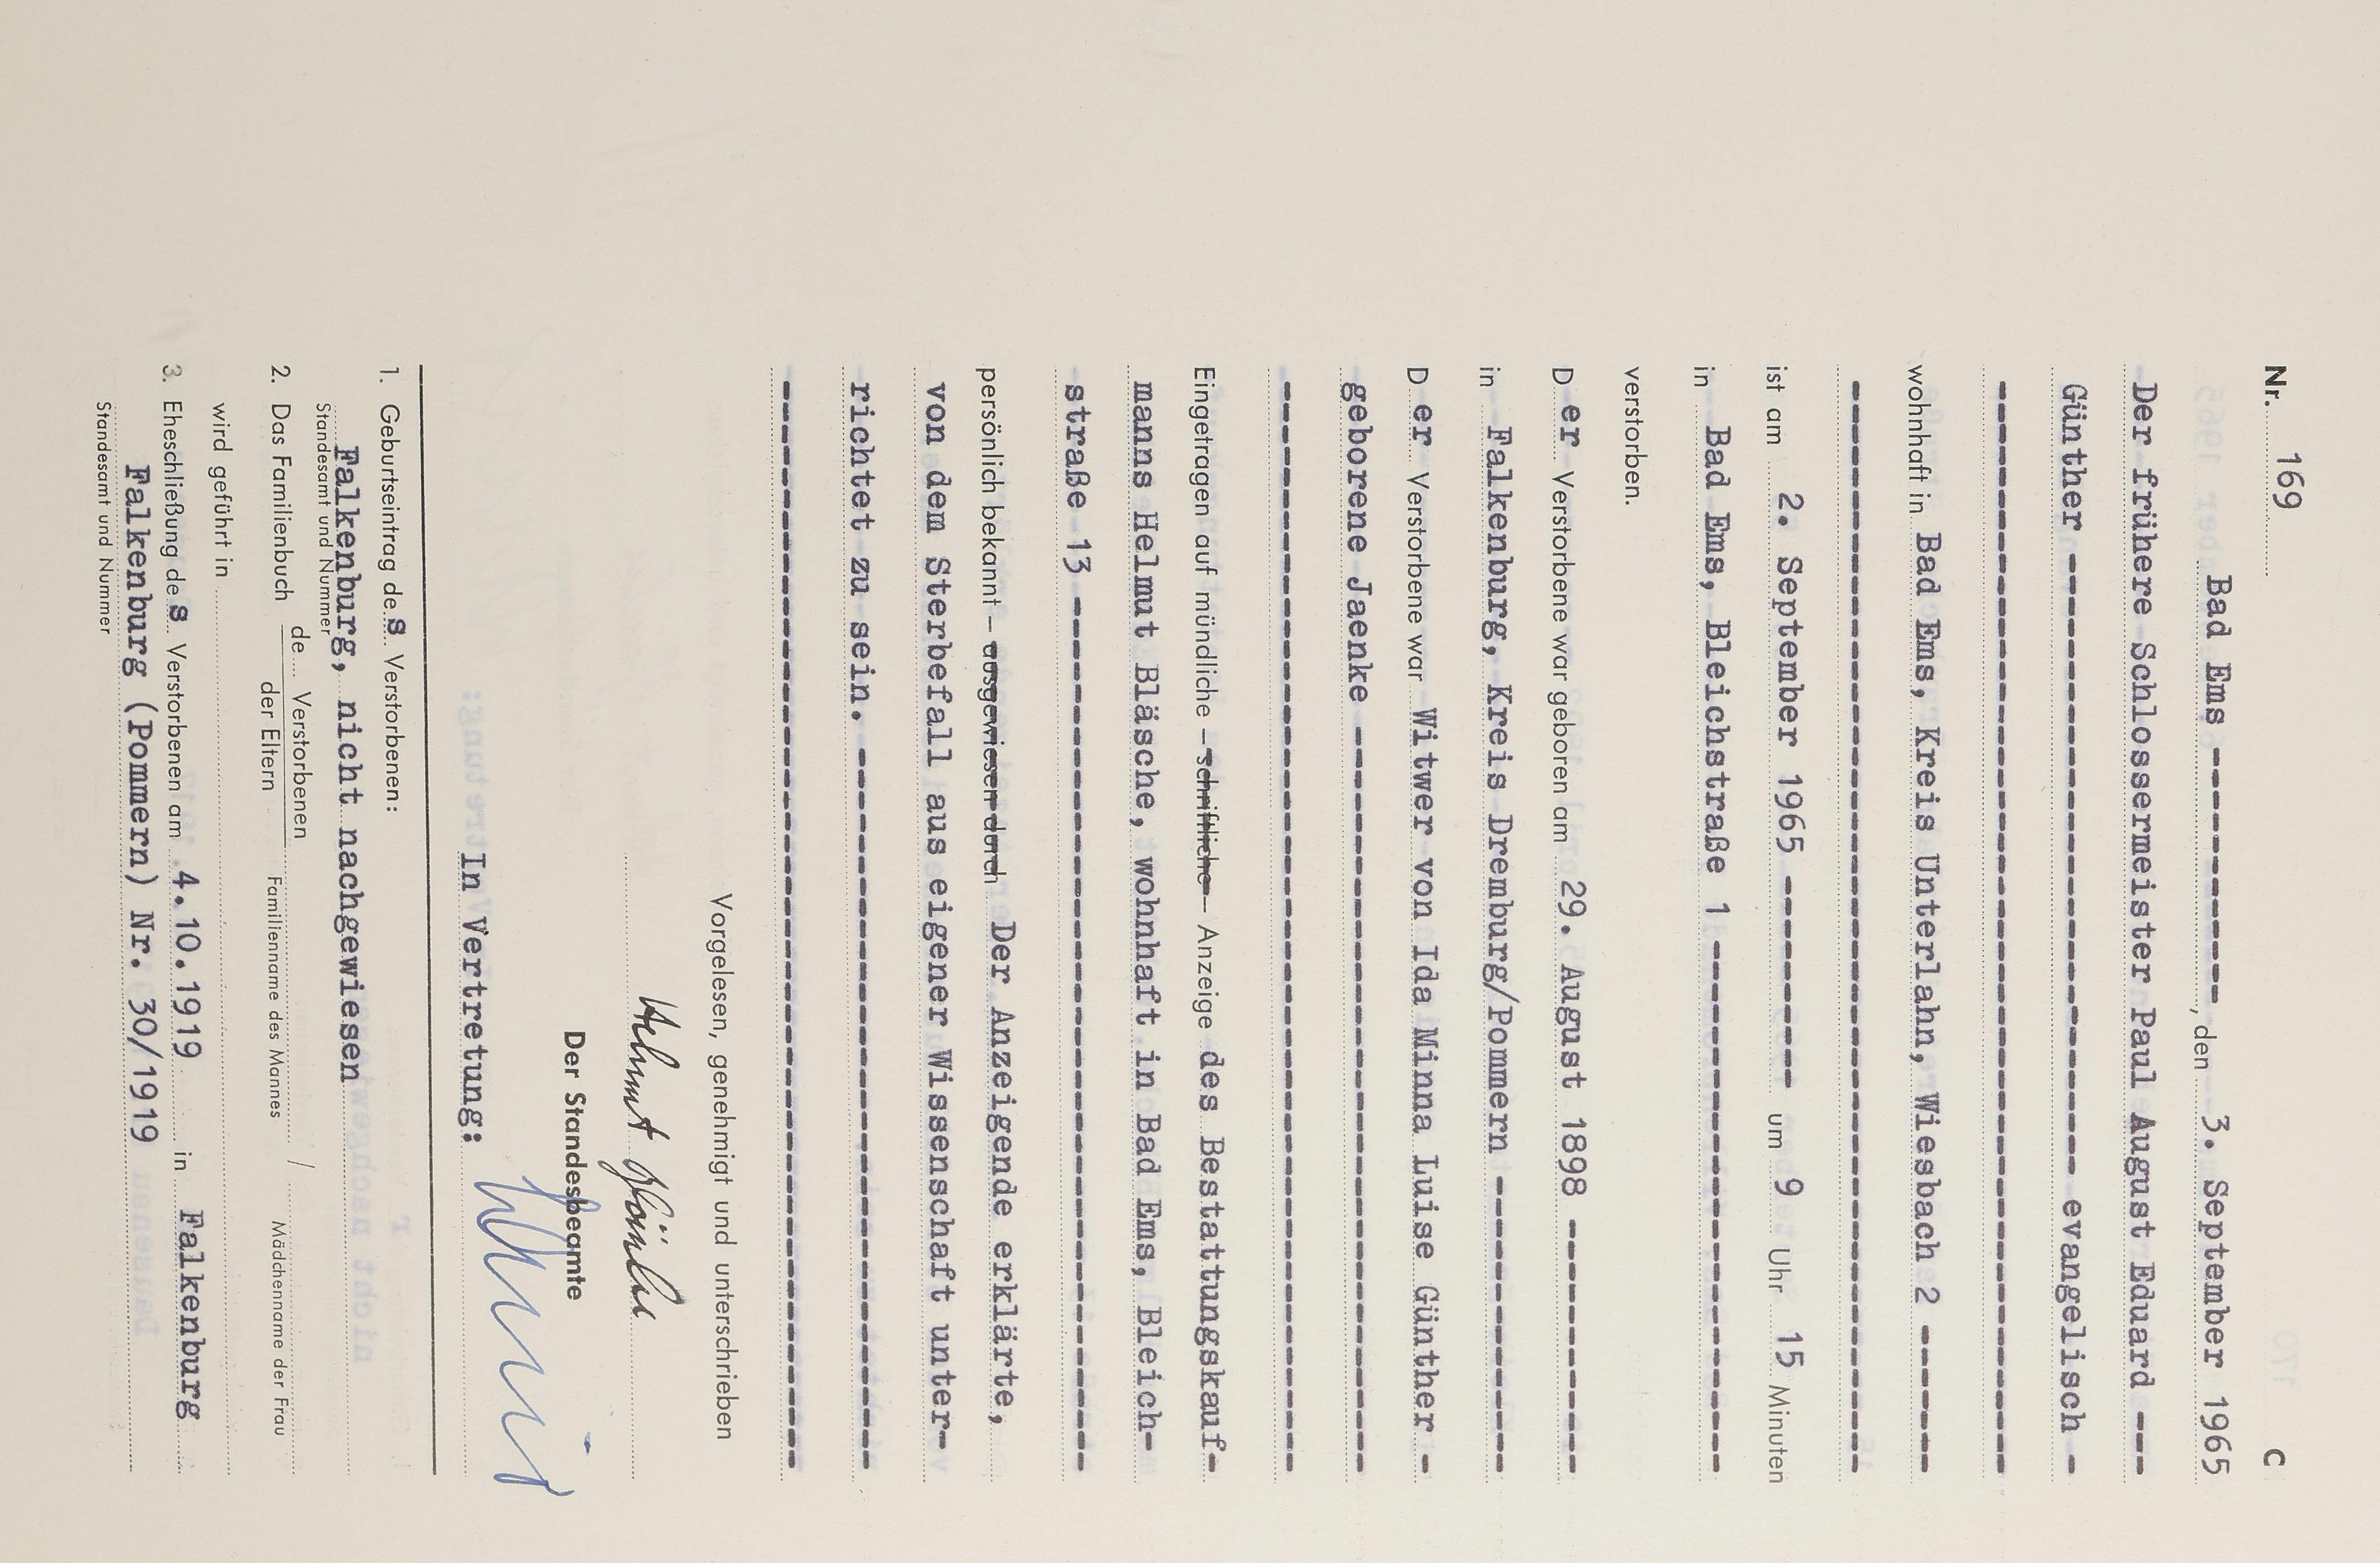 Nr. 169 C
Bad Ems ------------, den 3. September 1965
Der frühere Schlossermeister Paul August Eduard ---
Günther ------------------------------ evangelisch -
--------------------------------------------------
wohnhaft in Bad Ems, Kreis Unterlahn, Wiesbach 2 ------
--------------------------------------------------
ist am 2. September 1965 ---------- um 9 Uhr 15 Minuten
in Bad Ems, Bleichstraße 1 ------------------------
verstorben.
D er Verstorbene war geboren am 29. August 1898 -----------
in Falkenburg, Kreis Dremburg/Pommern -------------
D er Verstorbene war Witwer von Ida Minna Luise Günther -
geborene Jaenke -----------------------------------
--------------------------------------------------
Eingetragen auf mündliche – schriftliche – Anzeige des Bestattungskauf-
manns Helmut Bläsche, wohnhaft in Bad Ems, Bleich-
straße 13 -----------------------------------------
persönlich bekannt – ausgewiesen durch Der Anzeigende erklärte,
von dem Sterbefall aus eigener Wissenschaft unter-
richtet zu sein. ----------------------------------
--------------------------------------------------
Vorgelesen, genehmigt und unterschrieben
Helmut Bläsche
Der Standesbeamte
In Vertretung:
1. Geburtseintrag des Verstorbenen:
Falkenburg, nicht nachgewiesen
Standesamt und Nummer
2. Das Familienbuch de Verstorbenen / der Eltern
Familienname des Mannes / Mädchenname der Frau
wird geführt in
3. Eheschließung des Verstorbenen am 4.10.1919 in Falkenburg
Falkenburg (Pommern) Nr. 30/1919
Standesamt und Nummer